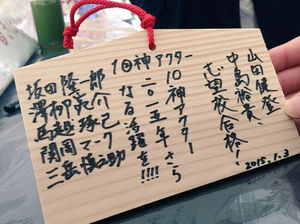 山田健登、
中島裕貴、
志望校合格!
10神アクター
10神アクター
二〇一五年さら
なる活躍を!!!!
坂田隆一郎
澤柳良介
馬越琢己
関岡マーク
三岳慎之助
2015.1.3